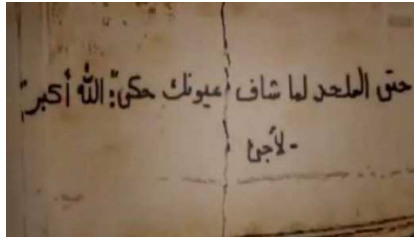 حتى الملحد لما شاف عيونك حكى: الله أكبر"
- لأجئ